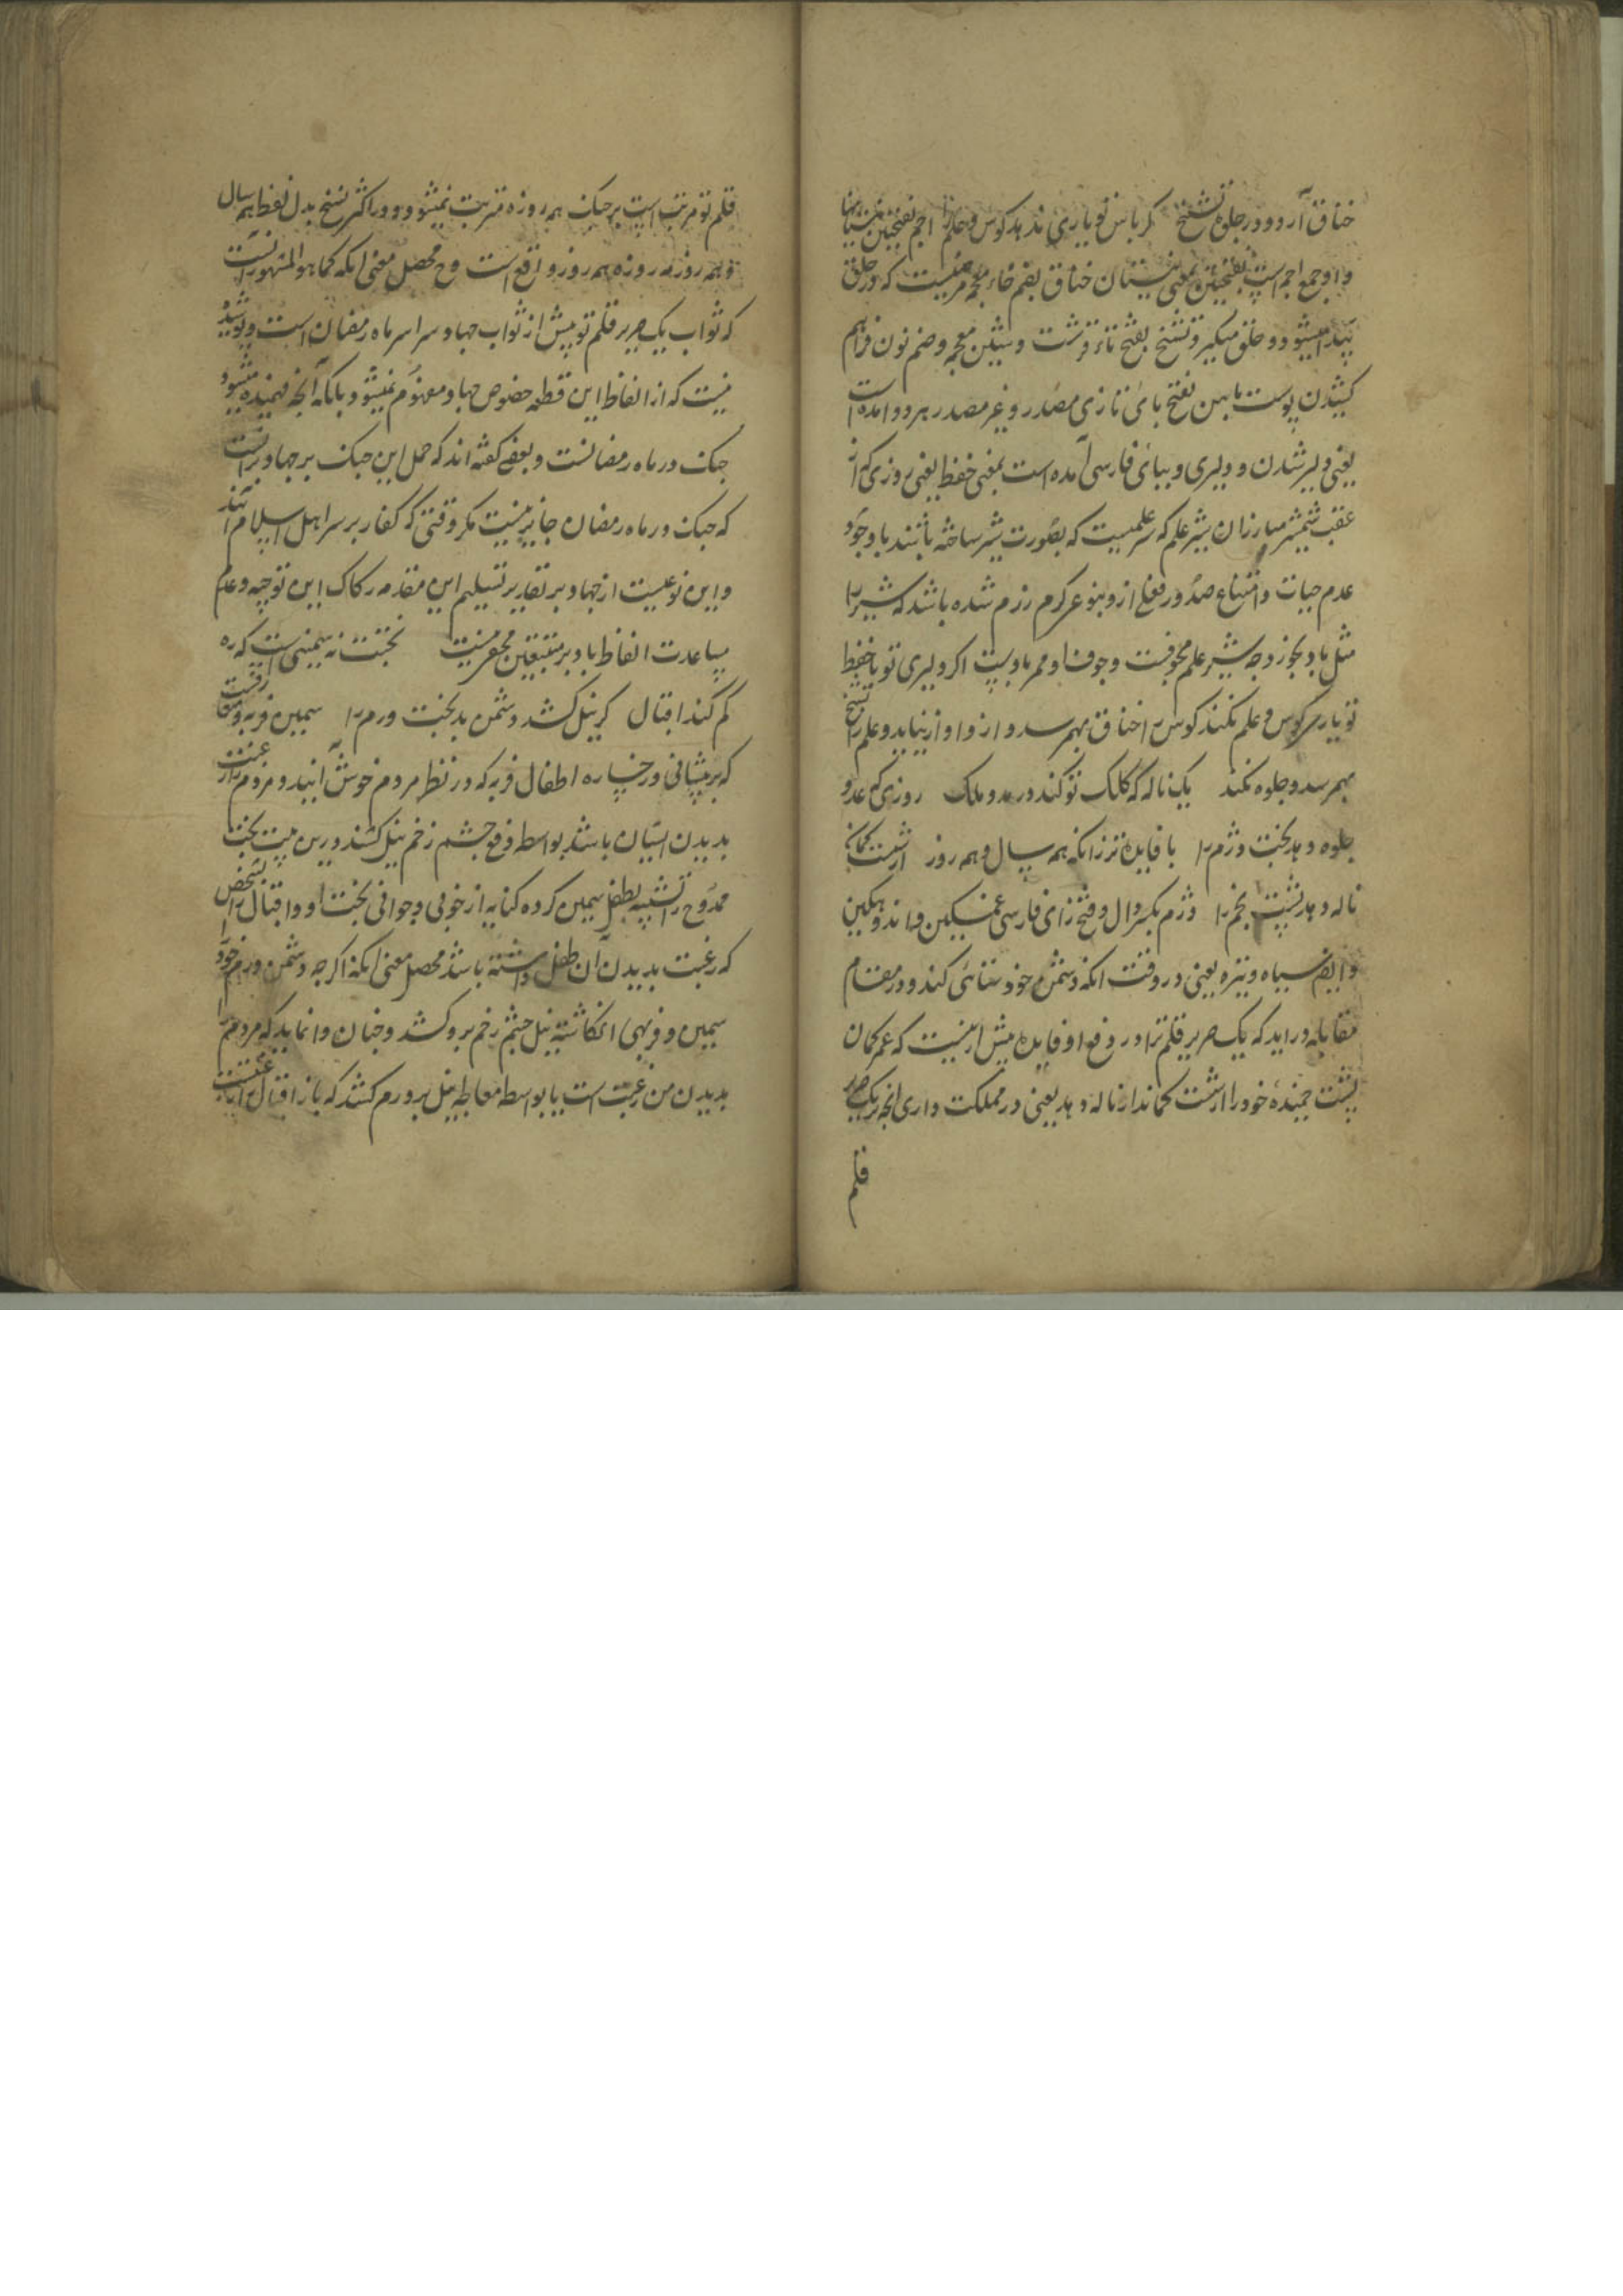 خناق آرد و در جلوه تشنج گر باس تو یاری ندهد کوس و علم را اجم بفتحتین نیستانها
و او جمع اجم است بفتحتین بمعنی نیستان خناق بضم خاء معجمه مرضیست که در حلق
پیدا میشود و حلق میگیرد تشنج بفتح تاء قرشت و شین معجمه و ضم نون فراهم
کشیدن پوست باس بفتح بای تازی مصدر و غیر مصدر هر دو آمده است
یعنی دلیر شدن و دلیری و ببای فارسی آمده است بمعنی حفظ یعنی روزی که از
عقب شمشیر مبارزان شیر علم که سر علمیست که بصورت شیر ساخته باشند با وجود
عدم حیات و امتناع صدور فعل از و بنوعی گرم رزم شده باشد که شیر را
مثل باد بخورد چه شیر علم مجوفست و جوف او ممر باد است اگر دلیری تو یا حفظ
تو یاری کوس و علم نکند کوس را خناق بهم رسد و از و آواز نیاید و علم را تشنج
بهم رسد و جلوه نکند یک ناله که کلک تو کند در مدد ملک روزی که عدو
جلوه دهد بخت دژم را با فایده‌تر زانکه همه سال و همه روز از شست کمان
ناله دهد پشت بخم را دژم بکسر دال و فتح زای فارسی غمگین و اندوهگین
و ایضا سیاه و تیره یعنی در وقت آنکه دشمن خودستائی کند و در مقام
مقابله در آید که یک صریر قلم ترا در دفع او فایده بیش از نیست که عمر کمان
پشت خمیده خود را از شست کماندار ناله دهد یعنی در مملکت داری آنچه بر یک صریر
قلم
قلم تو مرتب است بر جنگ همه روزه مترتب نمیشود و در اکثر نسخ بدل لفظ همه سال
و همه روز مه روزه همه روز واقع است و ح محصل معنی آنکه کما هو المشهور آنست
که ثواب یک صریر قلم تو بیش از ثواب جهاد سراسر ماه رمضان است و پوشیده
نیست که از الفاظ این قطعه خصوص جهاد مفهوم نمیشود بلکه آنچه فهمیده میشود
جنگ در ماه رمضانست و بعضی گفته اند که حمل این جنگ بر جهاد بر آنست
که جنگ در ماه رمضان جایز نیست مگر وقتی که کفار بر سر اهل اسلام آیند
و این نوعیست از جهاد بر تقدیر تسلیم این مقدمه رکاکت این توجیه و عدم
مساعدت الفاظ باو بر متتبعین مخفی نیست بختت نه سمینی است که ره
گم کند اقبال گر نیل کشد دشمن بدبخت ورم را سمین فربه و متعارفست
که بر پیشانی و رخساره اطفال فربه که در نظر مردم خوش آیند و مردم را رغبت
بدیدن ایشان باشد بواسطه دفع چشم زخم نیل کشند درین بیت بخت
ممدوح را تشبیه بطفل سمین کرده کنایه از خوبی و جوانی بخت او و اقبال را بشخصی
که رغبت بدیدن آن طفل داشته باشد محصل معنی آنکه اگر چه دشمن ورم خود را
سمین و فربهی انگاشته نیل چشم زخم بر و کشد و چنان وا نماید که مردم را
بدیدن من رغبت است یا بواسطه معالجه نیل بر ورم کشد که باز اقبال را رغبت